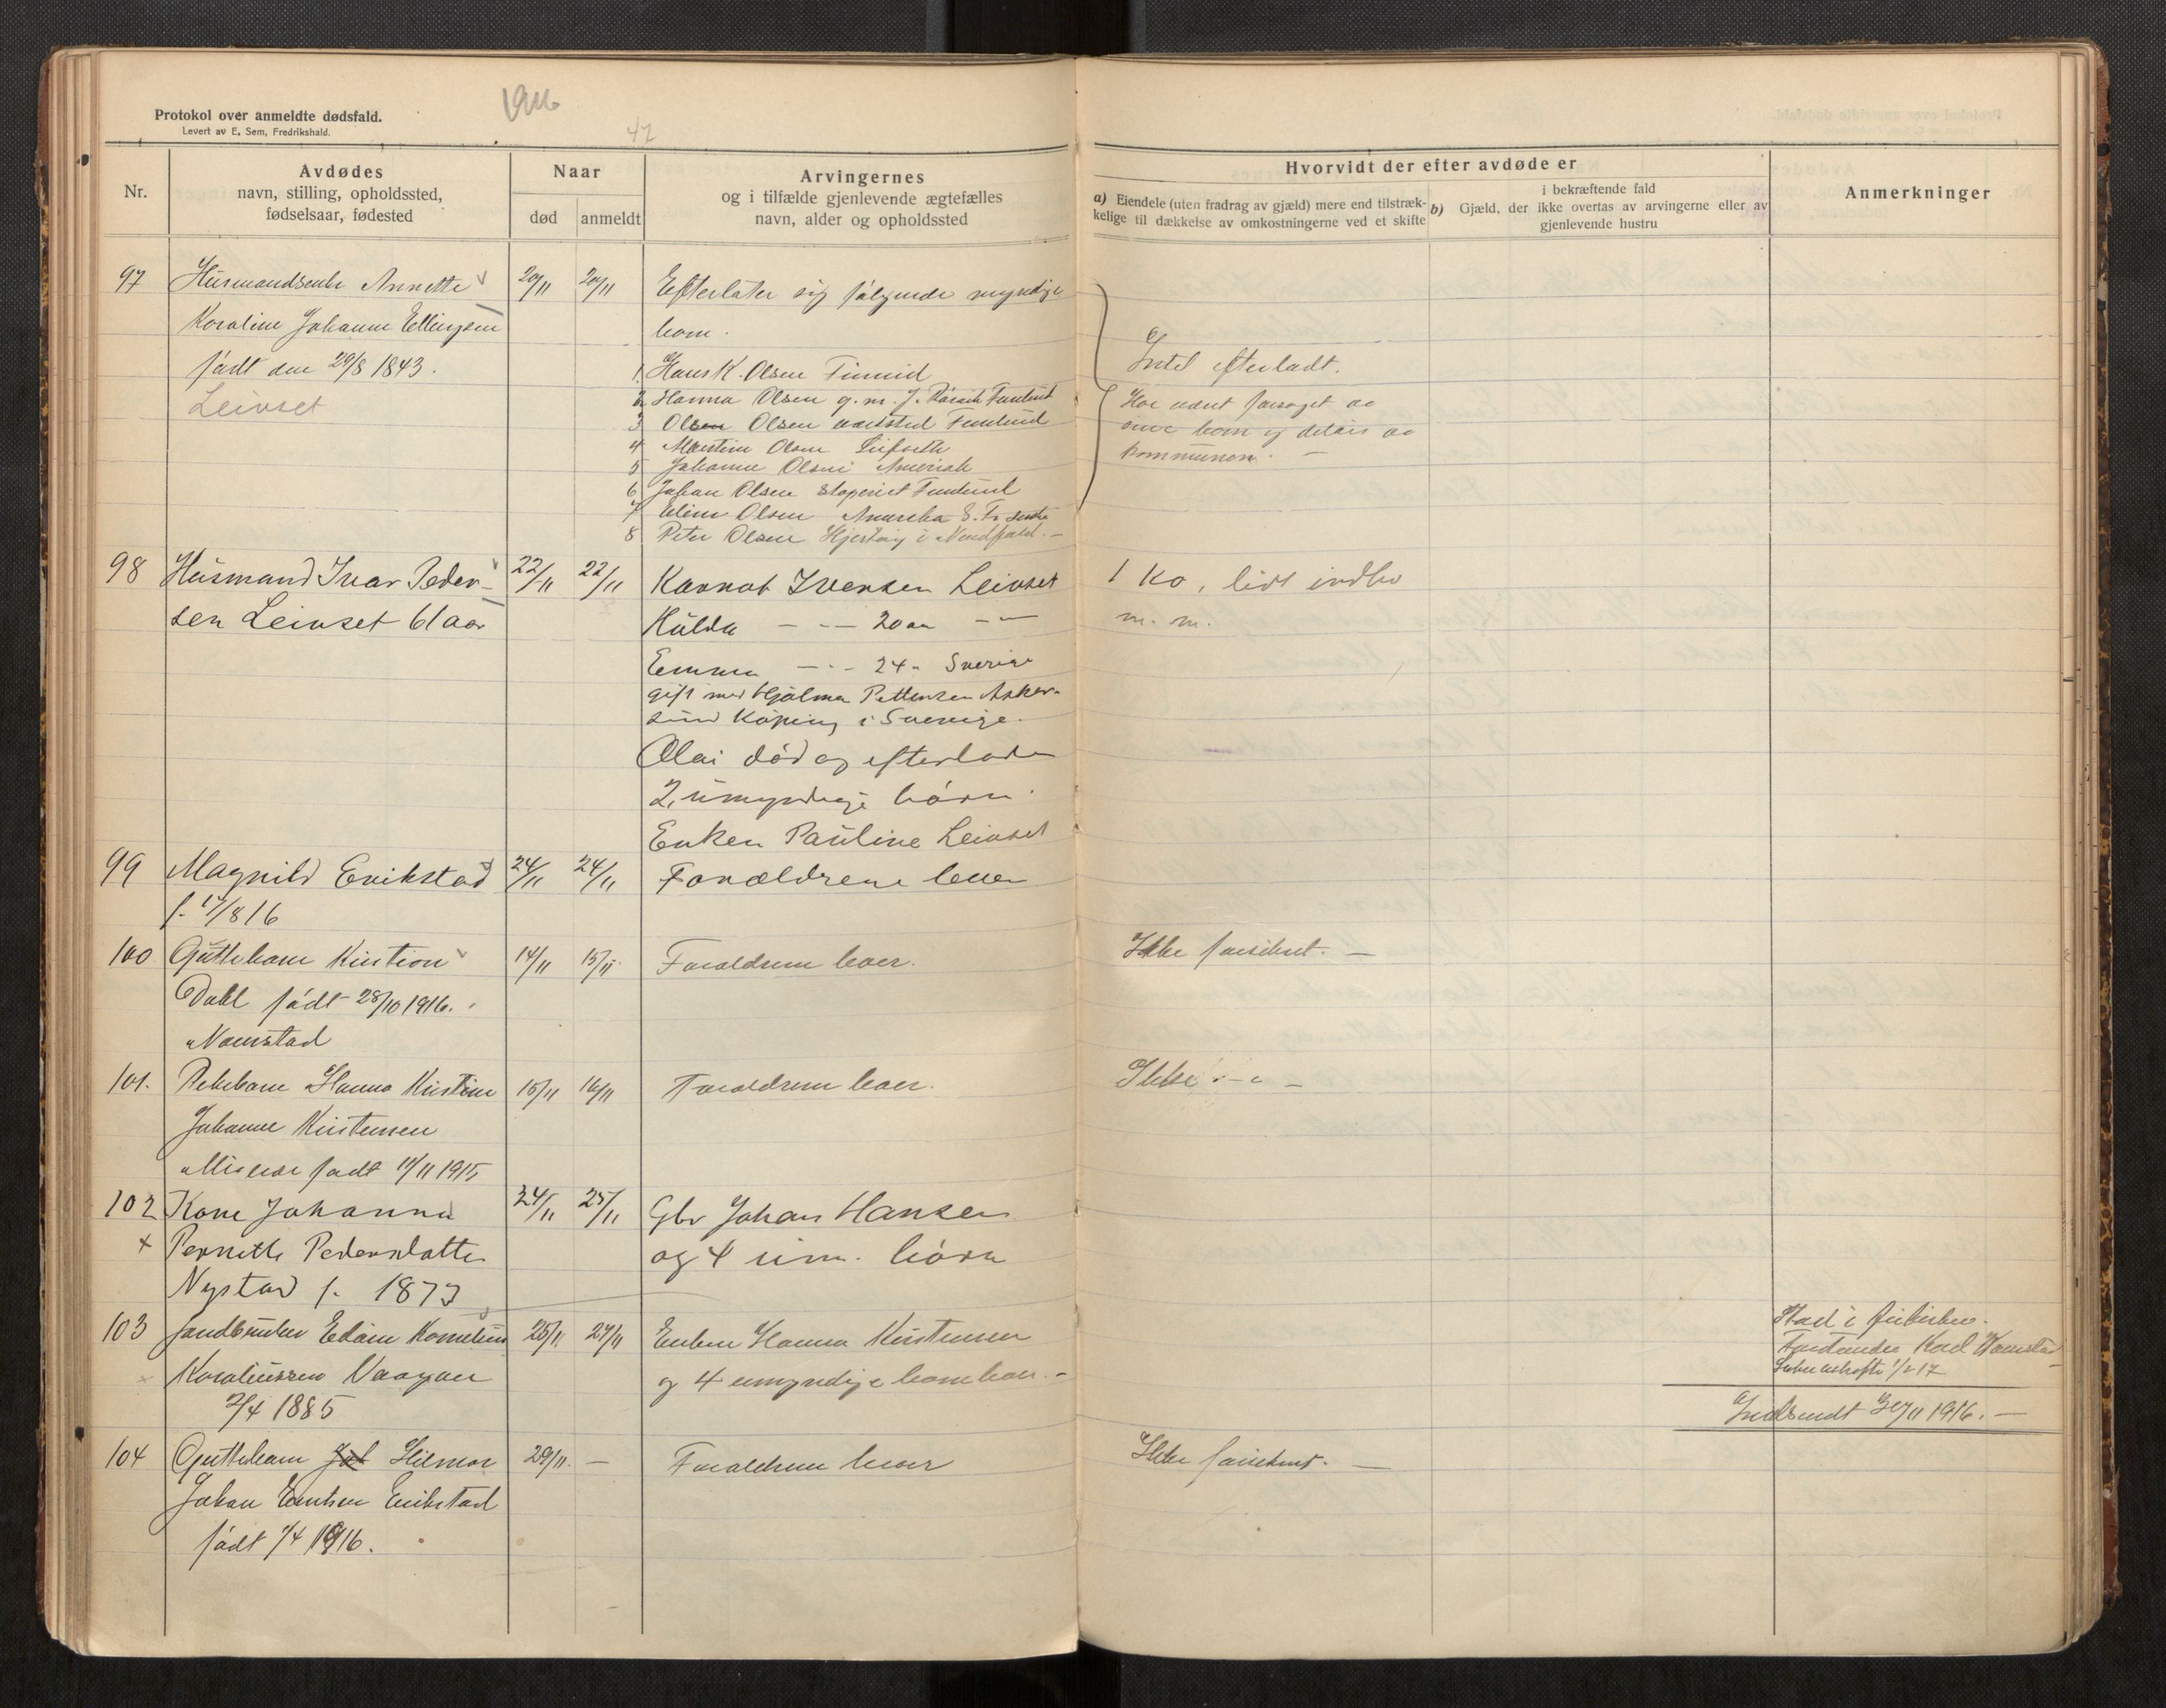 1916
Protokol over anmeldte dødsfald.
Levert av E. Sem, Fredrikshald.
47
Nr.
Avdødes
navn, stilling, opholdssted,
fødselsaar, fødested
Naar
død
anmeldt
Arvingernes
og i tilfælde gjenlevende ægtefælles
navn, alder og opholdssted
Hvorvidt der efter avdøde er
a) Eiendele (uten fradrag av gjæld) mere end tilstræk-
kelige til dækkelse av omkostningerne ved et skifte
i bekræftende fald
b) Gjæld, der ikke overtas av arvingerne eller av
gjenlevende hustru
Anmerkninger
97 Husmandsenke Annette 20/11 20/11 Efterlater sig følgende myndige
Koraline Johanne Ellingsen barn.
født den 29/8 1843.
Leivset
1. Hans K. Olsen
2 Hanna Olsen g. m. J.
3 Olsen
4 Martin Olsen
5 Johanne Olsen Amerika
6 Johan Olsen
7 Eline Olsen Amerika
8 Peter Olsen
Intet efterladt.
Har været forsørget av
sine barn og delvis av
kommunen. -
98 Husmand Ivar Peder- 22/11 22/11 Konrad Iversen Leivset
sen Leivset 61 aar
Hulda - - - 20 aar - -
Emma - - - 24 " Sverige
gift med Hjalmar Pettersen Asker-
sund Köping i Sverige.
Olai død og efterlader
2 umyndige børn.
Enken Pauline Leivset
1 ko, lidt indbo
m. m.
99 Magnild Erikstad 24/11 24/11 Forældrene lever
f. 17/8 16
100 Guttebarn Kristian 14/11 15/11 Forældrene lever.
Dahl født 28/10 1916.
Naurstad
Ikke formuent. -
101. Pikebarn Hanna Kristine 15/11 16/11 Forældrene lever.
Johanne Kristensen
Misvær født 11/11 1915
Ikke -"-
102 Kone Johanna 24/11 25/11 Gbr Johan Hansen
x Pernette Pedersdatter og 4 um. børn
Nystad f. 1873
103 Jandbruker Edain Kornelius 25/11 27/11 Enken Hanna Kristensen
Koraliussen Vaagan og 4 umyndige barn
2/4 1885
Indsendt 30/11 1916. -
104 Guttebarn Joh Hilmar 29/11. - Forældrene lever
Johan Erikstad
født 7/4 1916.
Ikke formuent. -